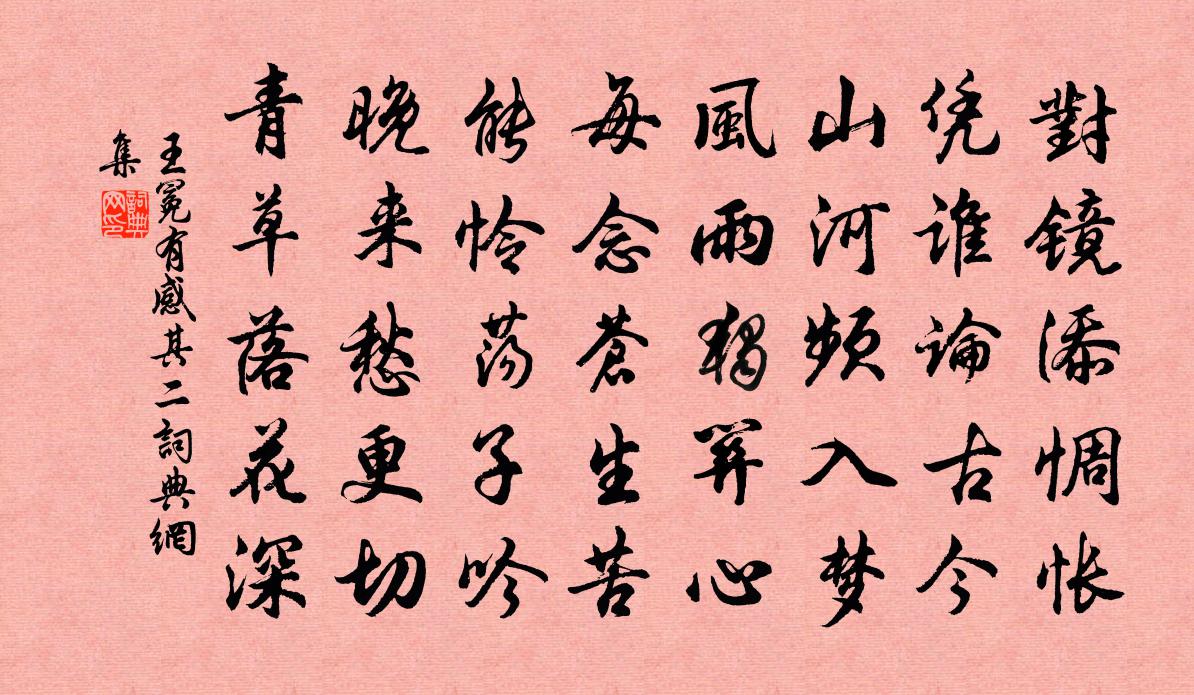 對镜添惆怅
凭谁論古今
山河频入梦
風雨獨關心
每念蒼生苦
能怜荡子吟
晚来愁更切
青草落花深
王冕有感其二詞典網
集
詞典
网印